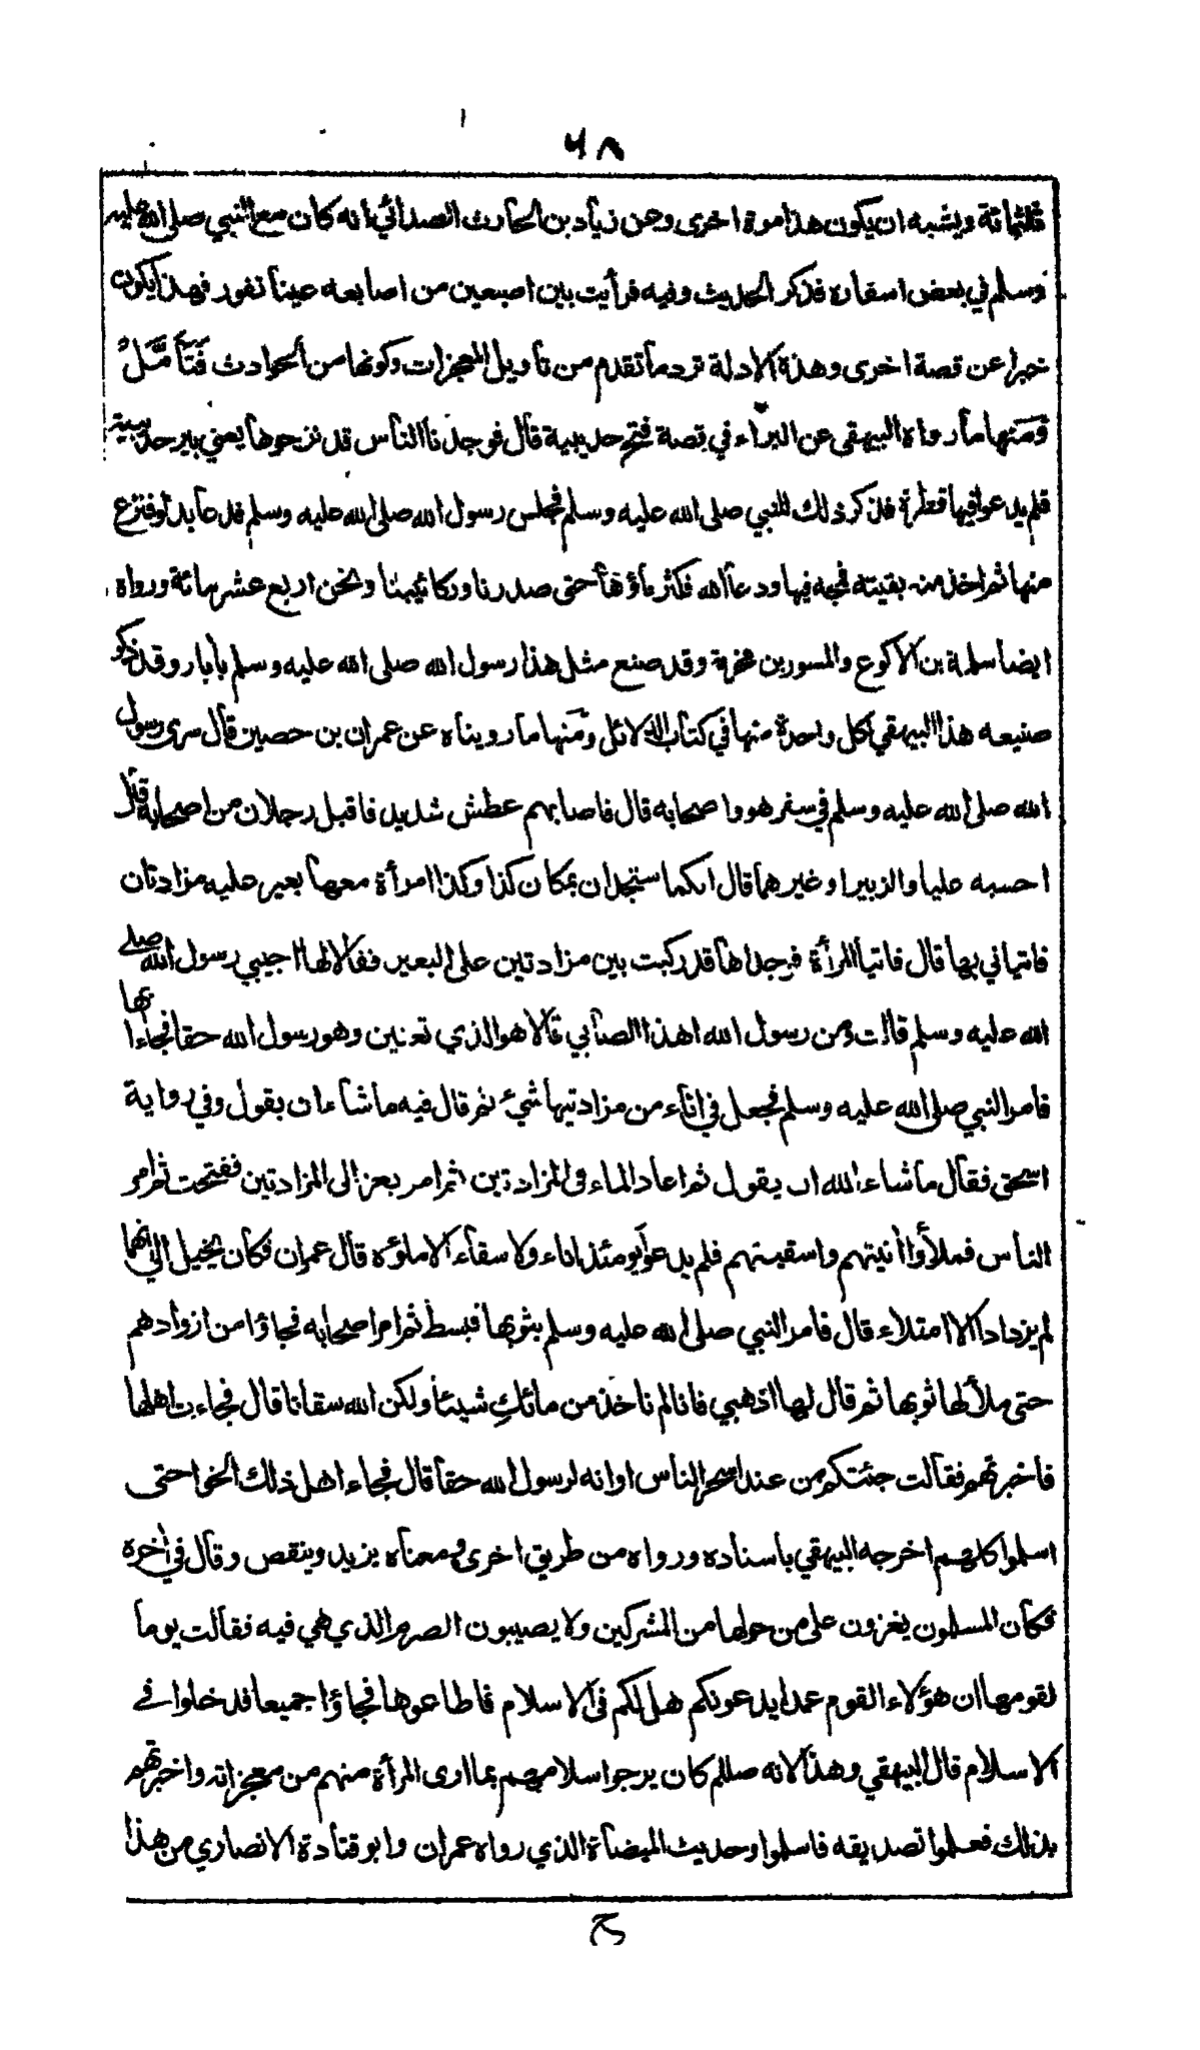 ٦٨
ثلثمائة ويشبه ان يكون هذا مرة اخرى وعن زياد بن الحارث الصدائي انه كان مع النبي صلى الله عليه
وسلم في بعض اسفاره فذكر الحديث وفيه فرأيت بين اصبعين من اصابعه عينا تفور فهذا يكون
خبرا عن قصة اخرى وهذه الادلة ترد ما تقدم من تأويل المعجزات وكونها من الحوادث فَتَأَمَّلْ
وَمنها ما رواه البيهقى عن البراء في قصة فتح حديبية قال فوجدنا الناس قد نزحوها يعني بير حديبية
فلم يدعوا فيها قطرة فذكر ذلك للنبي صلى الله عليه وسلم فجلس رسول الله صلى الله عليه وسلم فدعا بدلو فنزع
منها ثم اخذ منه بقيته فمجه فيها ودعا الله فكثر ماؤها حتى صدرنا وركائبنا ونحن اربع عشر مائة ورواه
ايضا سلمة بن الاكوع والمسور بن مخرمة وقد صنع مثل هذا رسول الله صلى الله عليه وسلم بأبار وقد ذكر
صنيعه هذا البيهقي لكل واحدة منها في كتاب الدلائل ومَنها ما رويناه عن عمران بن حصين قال سرى رسول
الله صلى الله عليه وسلم في سفر هو واصحابه قال فاصابهم عطش شديد فاقبل رجلان من اصحابه قال
احسبه عليا والزبير او غيرهما قال انكما ستجدان بمكان كذا وكذا امرأة معها بعير عليه مزادتان
فاتياني بها قال فاتيا المرأة فوجداها قد ركبت بين مزادتين على البعير فقالا لها اجيبي رسول الله صلى
الله عليه وسلم قالت ومن رسول الله اهذا الصابي قالا هو الذي تعنين وهو رسول الله حقا فجاءا بها
فامر النبي صلى الله عليه وسلم فجعل في اناء من مزادتيها شيء ثم قال فيه ما شاء ان يقول وفي رواية
اسحق فقال ما شاء الله ان يقول ثم اعاد الماء في المزادتين ثم امر بعزالى المزادتين ففتحت ثم امر
الناس فملأوا أنيتهم واسقيتهم فلم يدعوا يومئذ اناء ولا سقاء الا ملؤه قال عمران فكان يخيل الي انهما
لم يزدادا الا امتلاء قال فامر النبي صلى الله عليه وسلم بثوبها فبسط ثم امر اصحابه فجاؤا من ازوادهم
حتى ملأ لها ثوبها ثم قال لها اذهبي فانا لم ناخذ من مائكِ شيئا ولكن الله سقانا قال فجاءت اهلها
فاخبرتهم فقالت جئتكم من عند اسحر الناس او انه لرسول الله حقا قال فجاء اهل ذلك الحوا حتى
اسلموا كلهم اخرجه البيهقي باسناده ورواه من طريق اخرى ومعناه يزيد وينقص وقال في أخره
فكان المسلمون يغزون على من حولها من المشركين ولا يصيبون الصرم الذي هي فيه فقالت يوما
لقومها ان هؤلاء القوم عمدا يدعونكم هل لكم في الاسلام فاطاعوها فجاؤا جميعا فدخلوا في
الاسلام قال البيهقي وهذا لانه صللم كان يرجو اسلامهم بما ارى المرأة منهم من معجزاته واخبرتهم
بذلك فعلموا تصديقه فاسلموا وحديث الميضأة الذي رواه عمران وابو قتادة الانصاري من هذا